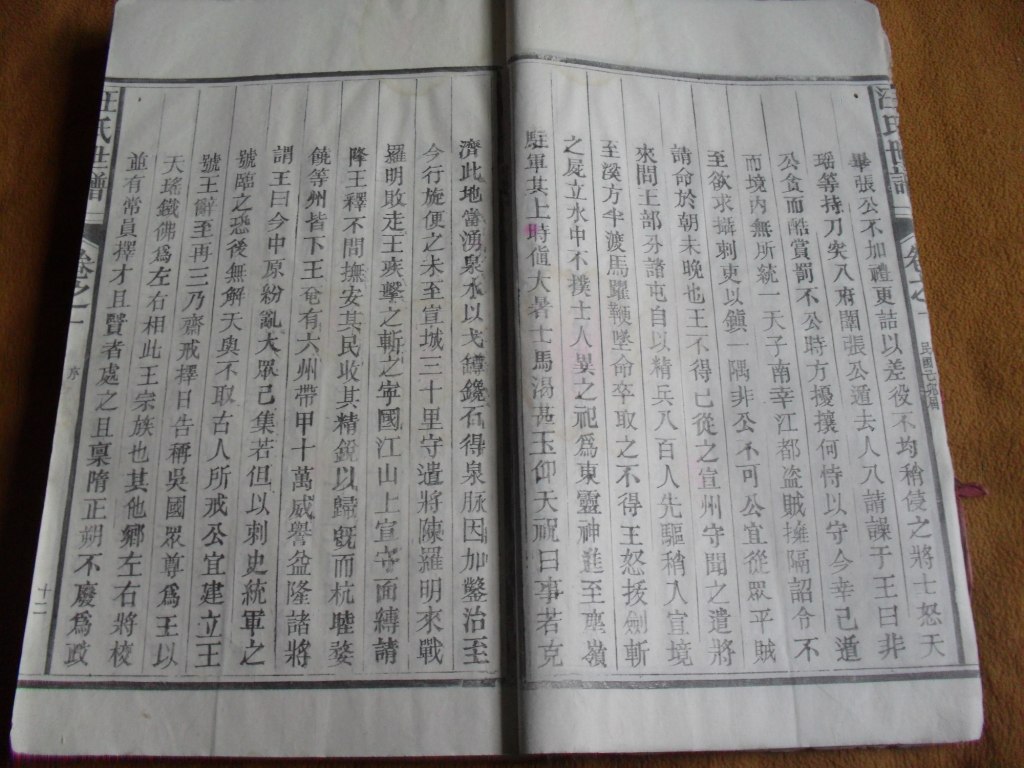 汪氏世譜
卷之一
畢張公不加禮更詰以差役不均稍侵之將士怒天
瑶等持刀突入府閣張公遁去人入請謙于王曰非
公貪而酷賞罰不公時方擾攘何恃以守今幸已遁
而境內無所統一天子南幸江都盜賊擁隔詔令不
至欲求攝刺吏以鎭一隅非公不可公宜從眾平賊
請命於朝未晚也王不得已從之宣州守聞之遣將
來問王部分諸屯自以精兵八百人先驅稍入宣境
至溪方半渡馬躍鞭墜命卒取之不得王怒拔劍斬
之屍立水中不撲士人異之祀爲東靈神進至嶺
駐軍其上時値大暑士馬渴甚王仰天祝曰事若克
濟此地當湧泉水以戈鐏鑱石得泉脉因加鑿治至
今行旅便之未至宣城三十里守遣將陳羅明來戰
羅明敗走王疾擊之斬之寧國江山上宣守面縛請
降王釋不問撫安其民收其精銳以歸旣而杭睦婺
饒等州皆下王奄有六州帶甲十萬威譽益隆諸將
謂王曰今中原紛亂大眾已集若但以刺史統軍之
號臨之恐後無解天與不取古人所戒公宜建立王
號王辭至再三乃齋戒擇日告稱吳國眾尊爲王以
天瑤鐵佛爲左右相此王宗族也其他鄉左右將校
並有常員擇才且賢者處之且稟隋正朔不廢爲政
汪氏世譜
卷之一
序
十二